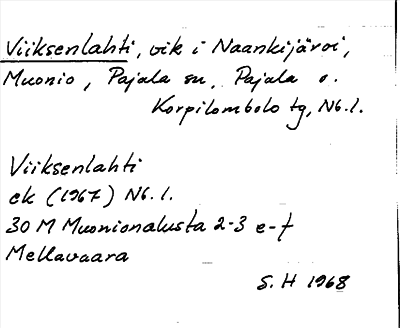 Viiksenlahti, vik i Naankijärvi,
Muonio, Pajala sn, Pajala o.
Korpilombolo tg, Nb.l.
Viiksenlahti
ek (1967) Nb.l.
30 M Muonionalusta 2-3 e-f
Mellavaara
S.H 1968